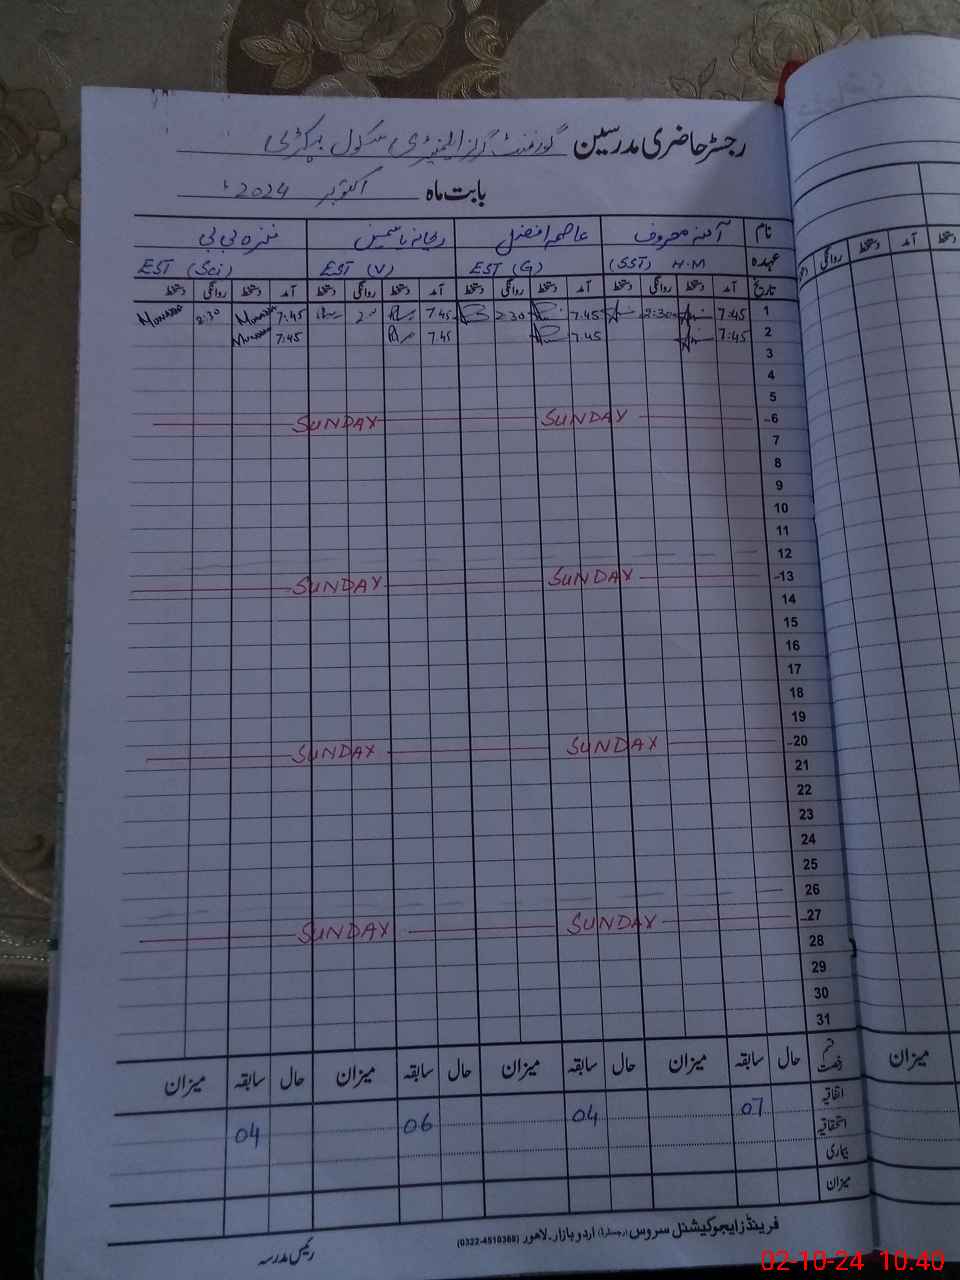 رجسٹر حاضری مدرسین گورنمنٹ گرلز ایلیمنٹری سکول
بابت ماہ اکتوبر 2024ء
نام آمنہ معروف عاصمہ افضل ریحانہ یاسمین منزہ بی بی
عہدہ (SST) H.M EST (G) EST (V) EST (Sci)
تاریخ آمد دستخط روانگی دستخط آمد دستخط روانگی دستخط آمد دستخط روانگی دستخط آمد دستخط روانگی دستخط
1 7:45 2:30 7:45 2:30 7:45 7:45 2:30
2 7:45 7:45 7:45 7:45
3
4
5
6 SUNDAY SUNDAY
7
8
9
10
11
12
13 SUNDAY SUNDAY
14
15
16
17
18
19
20 SUNDAY SUNDAY
21
22
23
24
25
26
27 SUNDAY SUNDAY
28
29
30
31
قسم رخصت حال سابقہ میزان حال سابقہ میزان حال سابقہ میزان حال سابقہ میزان
اتفاقیہ 07 04 06 04
استحقاقیہ
بیماری
میزان
فرینڈز ایجوکیشنل سروس (رجسٹرڈ) اردو بازار۔لاہور (0322-4510360)
رئیس مدرسہ
دستخط آمد دستخط روانگی
میزان
02-10-24 10:40